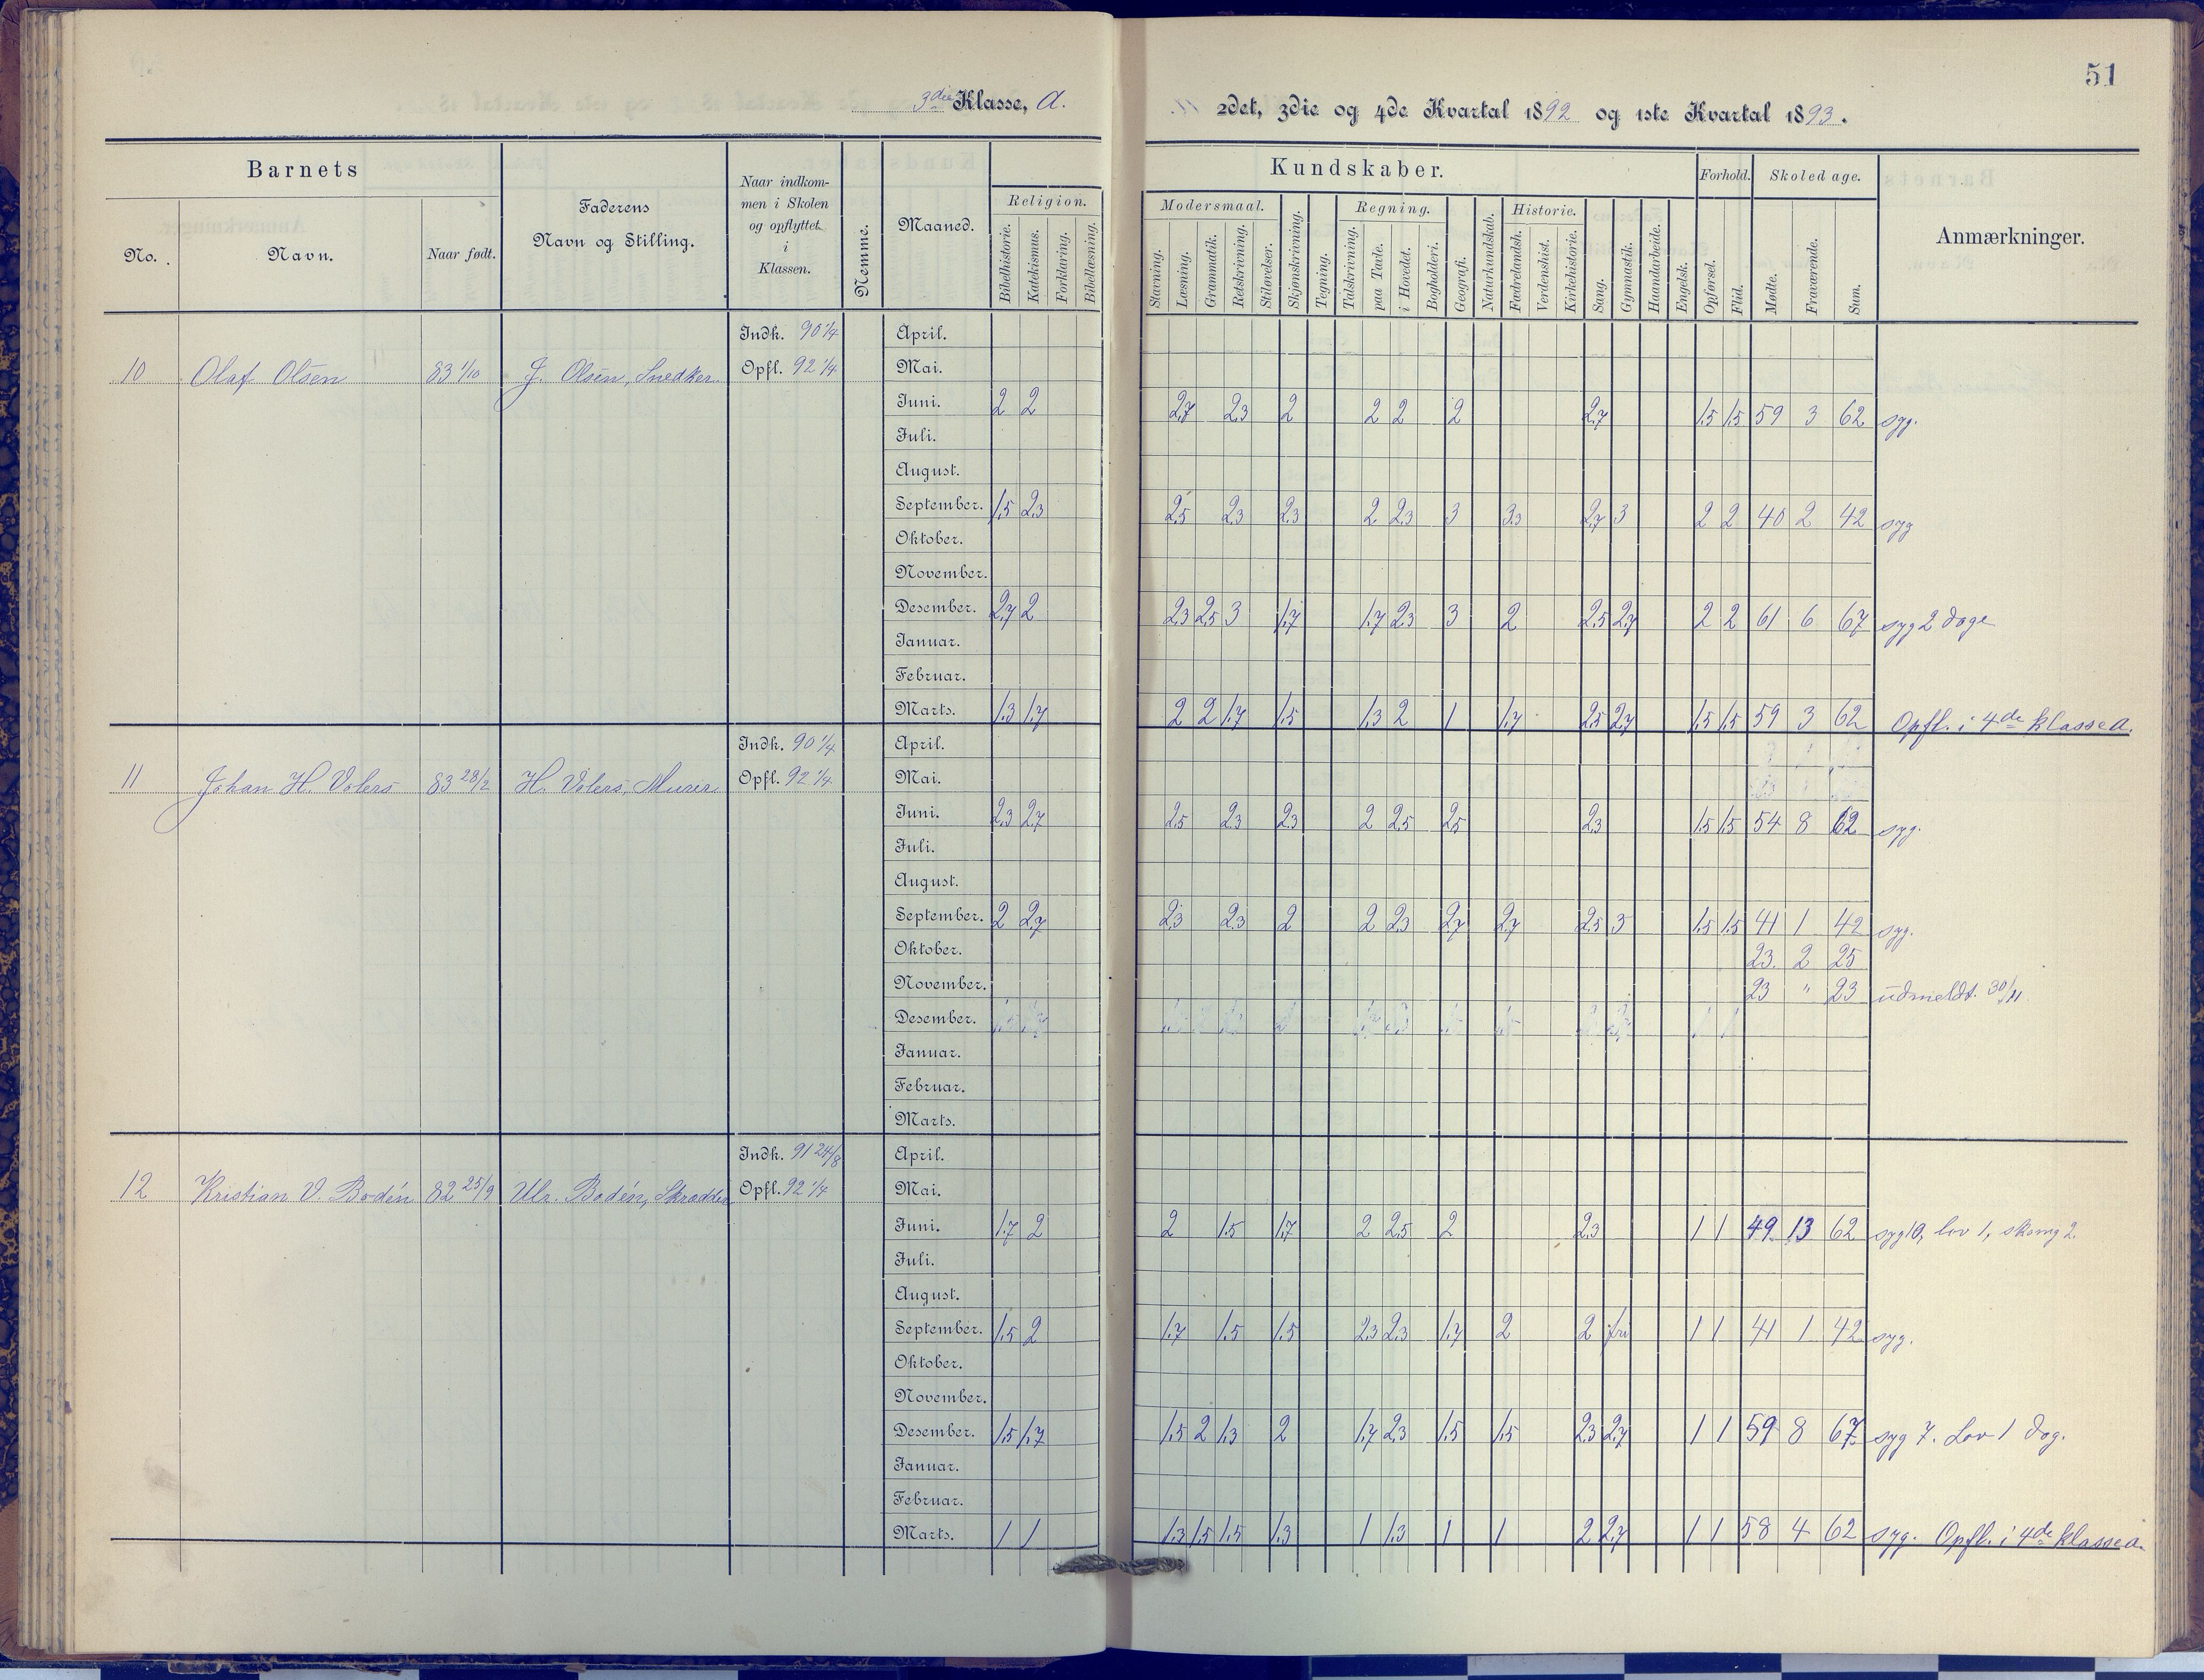 51
3die Klasse, A.
2det, 3die og 4de Kvartal 1892 og 1ste Kvartal 1893.
Barnets
No. Navn. Naar født.
Faderens Navn og Stilling.
Naar indkom-
men i Skolen
og opflyttet
i
Klassen.
Nemme.
Maaned.
Kundskaber.
Religion.
Bibelhistorie. Katekismus. Forklaring. Bibellæsning.
Modersmaal.
Stavning. Læsning. Grammatik. Retskrivning. Stiløvelser.
Skjønskrivning. Tegning.
Regning.
Talskrivning. paa Tavle. i Hovedet. Bogholderi.
Geografi. Naturkundskab.
Historie.
Fædrelandsh. Verdenshist. Kirkehistorie.
Sang. Gymnastik. Haandarbeide. Engelsk.
Forhold.
Opførsel. Flid.
Skoledage.
Mødte. Fraværende. Sum.
Anmærkninger.
Indk. 90 1/4 April.
10 Olaf Olsen 83 1/10 J. Olsen, Snedker. Opfl. 92 1/4 Mai.
Juni. 2 2 2.7 2.3 2 2 2 2 2.7 1.5 1.5 59 3 62 syg.
Juli.
August.
September. 1.5 2.3 2.5 2.3 2.3 2 2.3 3 3.3 2.7 3 2 2 40 2 42 syg
Oktober.
November.
Desember. 2.7 2 2.3 2.5 3 1.7 1.7 2.3 3 2 2.5 2.7 2 2 61 6 67 syg 2 dage
Januar.
Februar.
Marts. 1.3 1.7 2 2 1.7 1.5 1.3 2 1 1.7 2.5 2.7 1.5 1.5 59 3 62 Opfl. i 4de klasse a.
Indk. 90 1/4 April.
11 Johan H. Volers 83 28/2 H. Volers, Murer Opfl. 92 1/4 Mai.
Juni. 2.3 2.7 2.5 2.3 2.3 2 2.5 2.5 2.3 1.5 1.5 54 8 62 syg.
Juli.
August.
September. 2 2.7 2.3 2.3 2 2 2.3 2.7 2.7 2.5 3 1.5 1.5 41 1 42 syg.
Oktober. 23. 2 25
November. 23 " 23 udmeldt. 30/11
Desember.
Januar.
Februar.
Marts.
Indk. 91 24/8 April.
12 Kristian V. Bodén 82 25/9 Ulr. Bodén, Skrædder Opfl. 92 1/4 Mai.
Juni. 1.7 2 2 1.5 1.7 2 2.5 2 2.3 1 1 49 13 62 syg 10, lov 1, 2.
Juli.
August.
September. 1.5 2 1.7 1.5 1.5 2.3 2.3 1.7 2 2 fri 1 1 41 1 42 syg.
Oktober.
November.
Desember. 1.5 1.7 1.5 2 1.3 2 1.7 2.3 1.5 1.5 2.3 2.7 1 1 59 8 67 syg 7. Lov 1 dag.
Januar.
Februar.
Marts. 1 1 1.3 1.5 1.5 1.3 1 1.3 1 1 2 2.7 1 1 58 4 62 syg. Opfl. i 4de klasse a.